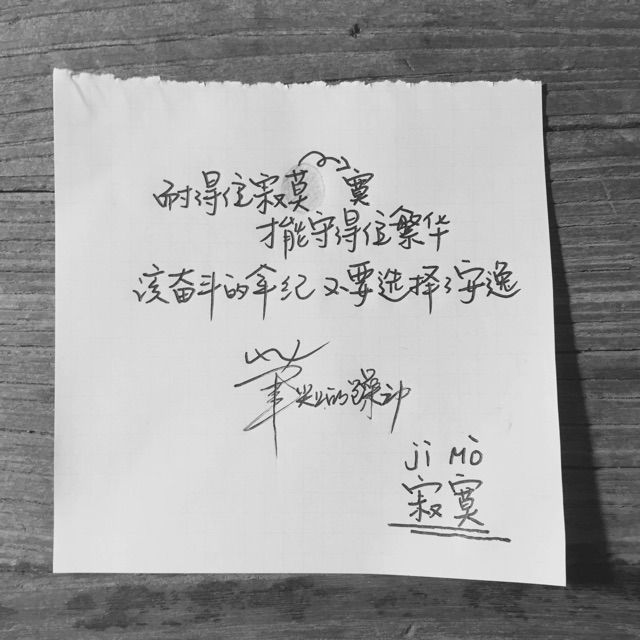 耐得住寂莫 寞
才能守得住繁华
该奋斗的年纪不要选择安逸
的躁动
jì MÒ
寂寞